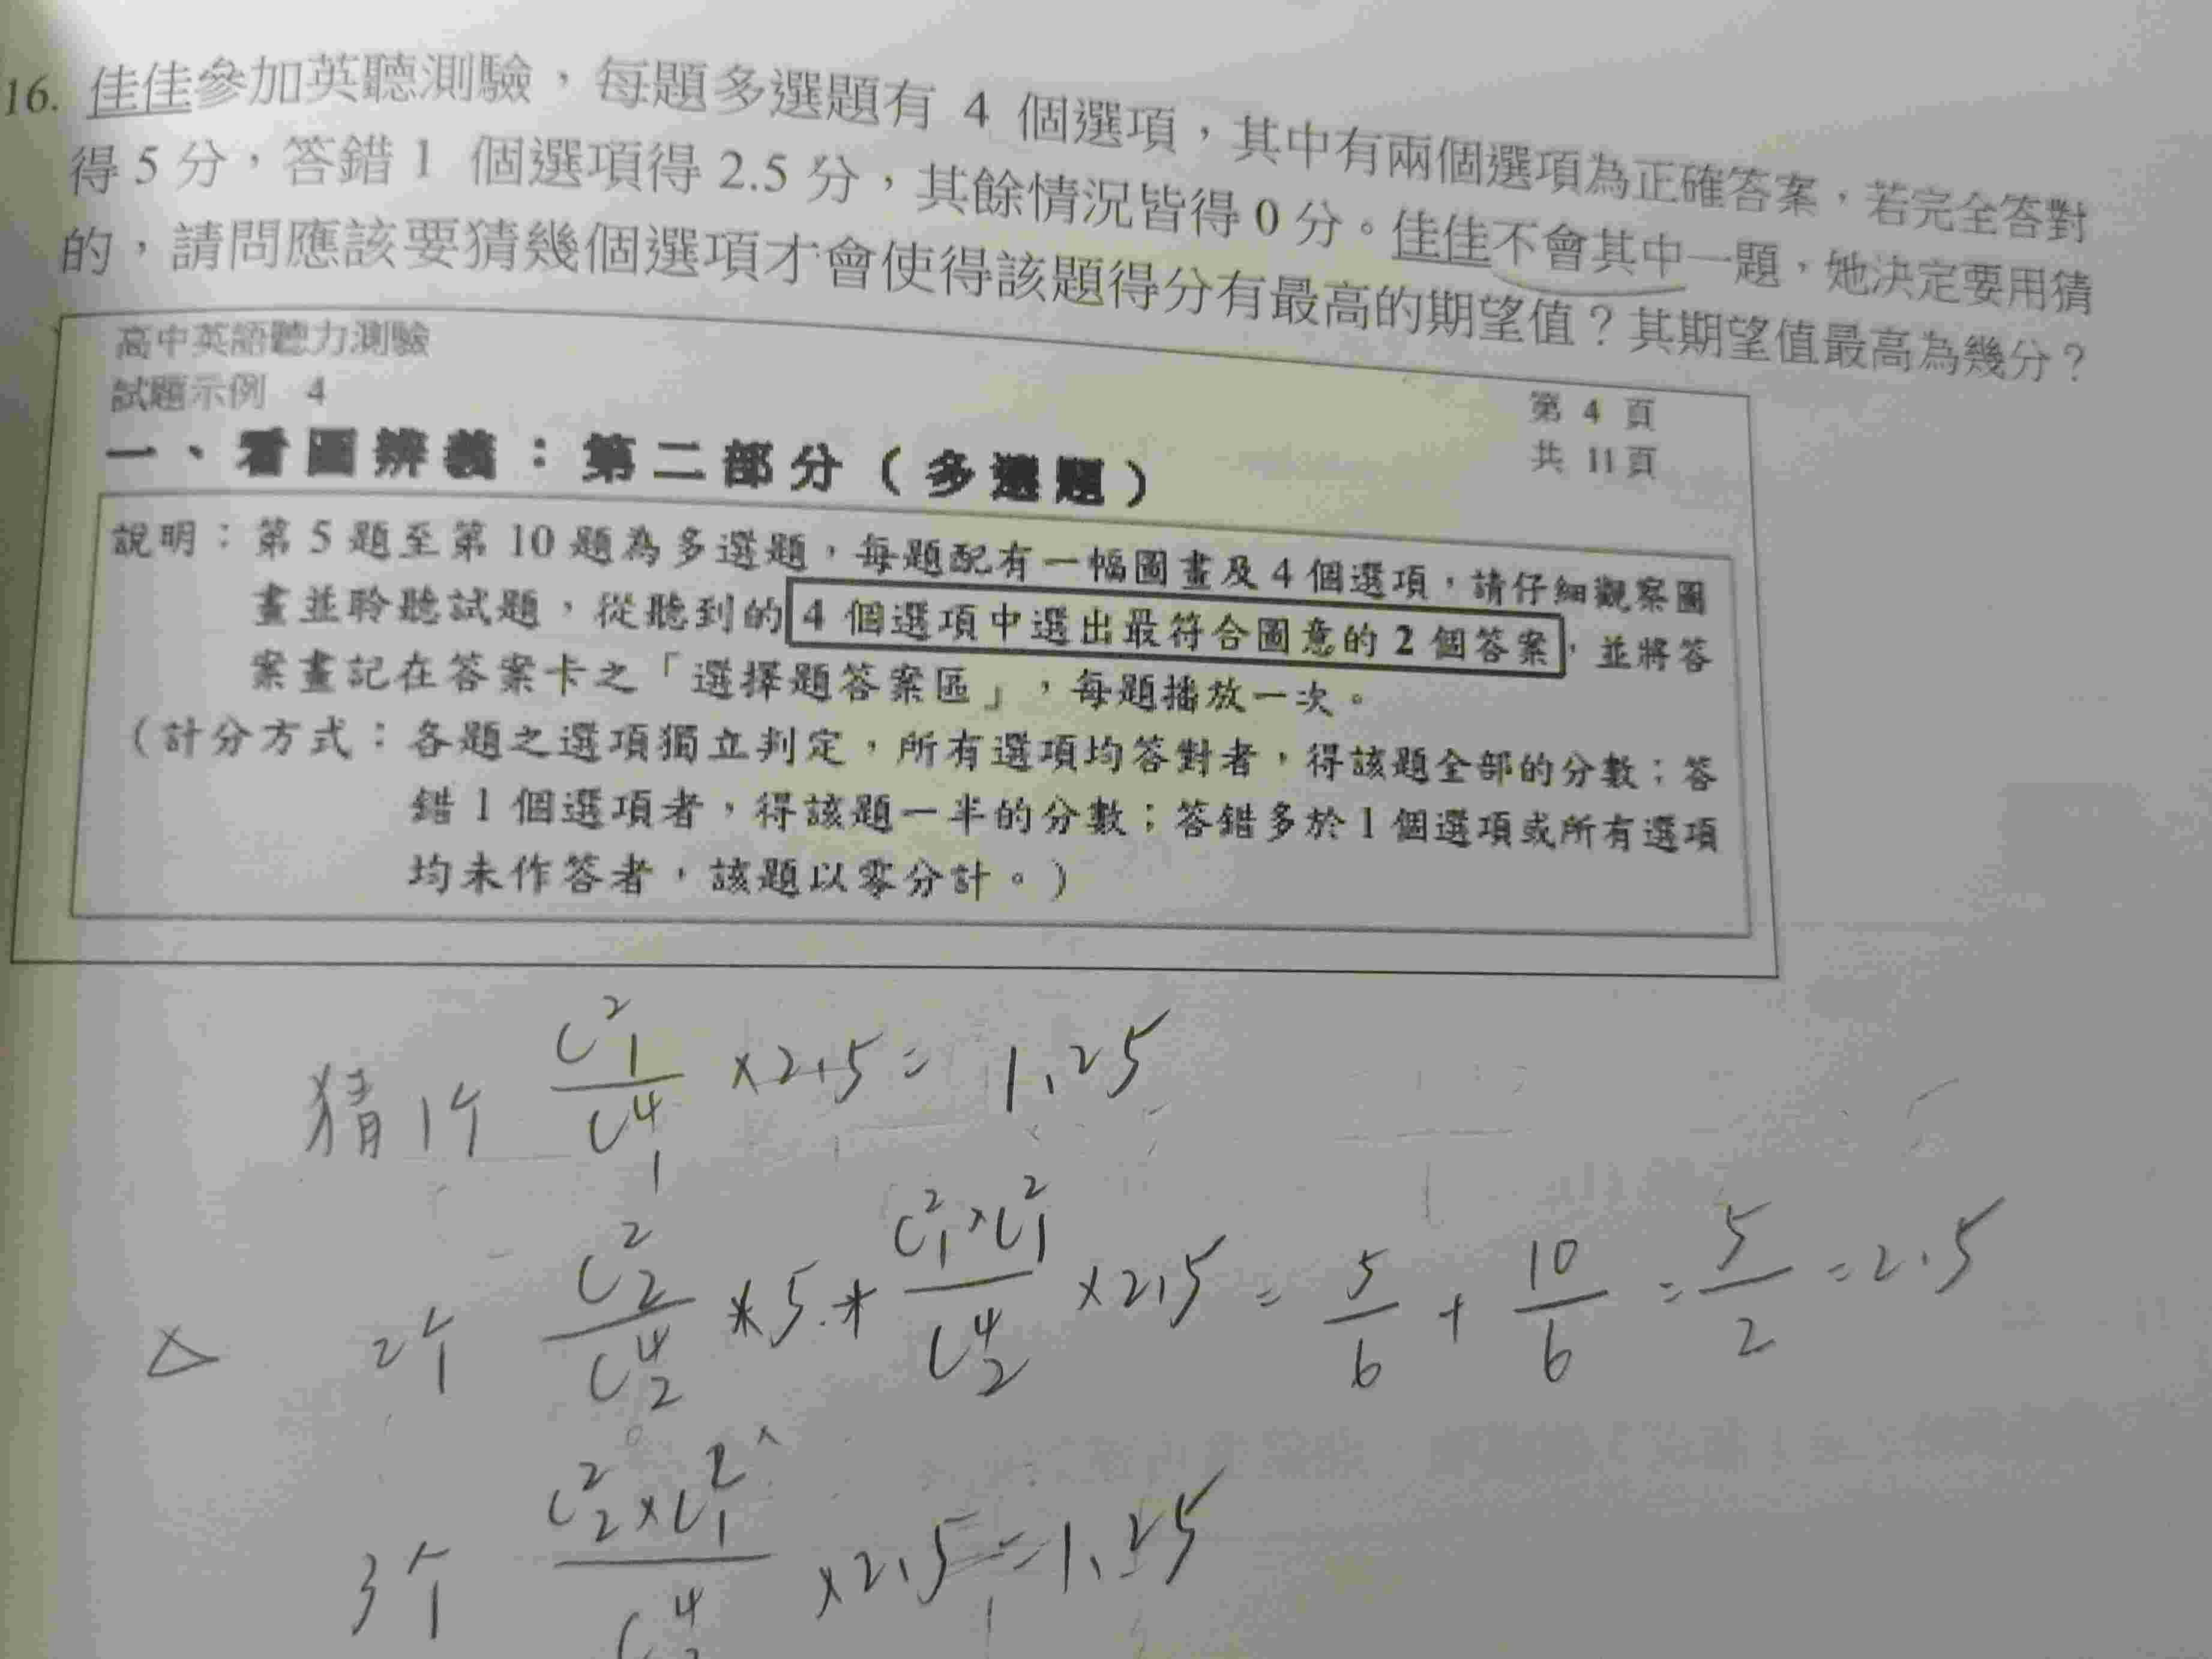 16. 佳佳參加英聽測驗，每題多選題有 4 個選項，其中有兩個選項為正確答案，若完全答對
得 5 分，答錯 1 個選項得 2.5 分，其餘情況皆得 0 分。佳佳不會其中一題，她決定要用猜
的，請問應該要猜幾個選項才會使得該題得分有最高的期望值？其期望值最高為幾分？
高中英語聽力測驗
試題示例 4
第 4 頁
共 11 頁
一、看圖辨義：第二部分（多選題）
說明：第 5 題至第 10 題為多選題，每題配有一幅圖畫及 4 個選項，請仔細觀察圖
畫並聆聽試題，從聽到的 4 個選項中選出最符合圖意的 2 個答案，並將答
案畫記在答案卡之「選擇題答案區」，每題播放一次。
（計分方式：各題之選項獨立判定，所有選項均答對者，得該題全部的分數；答
錯 1 個選項者，得該題一半的分數；答錯多於 1 個選項或所有選項
均未作答者，該題以零分計。）
猜 1个 C²₁/C⁴₁ ×2.5= 1.25
△ 2个 C²₂/C⁴₂ ×5+ C²₁×C²₁/C⁴₂ ×2.5 = 5/6 + 10/6 = 5/2 =2.5
3个 C²₂×C²₁/C⁴₃ ×2.5=1.25